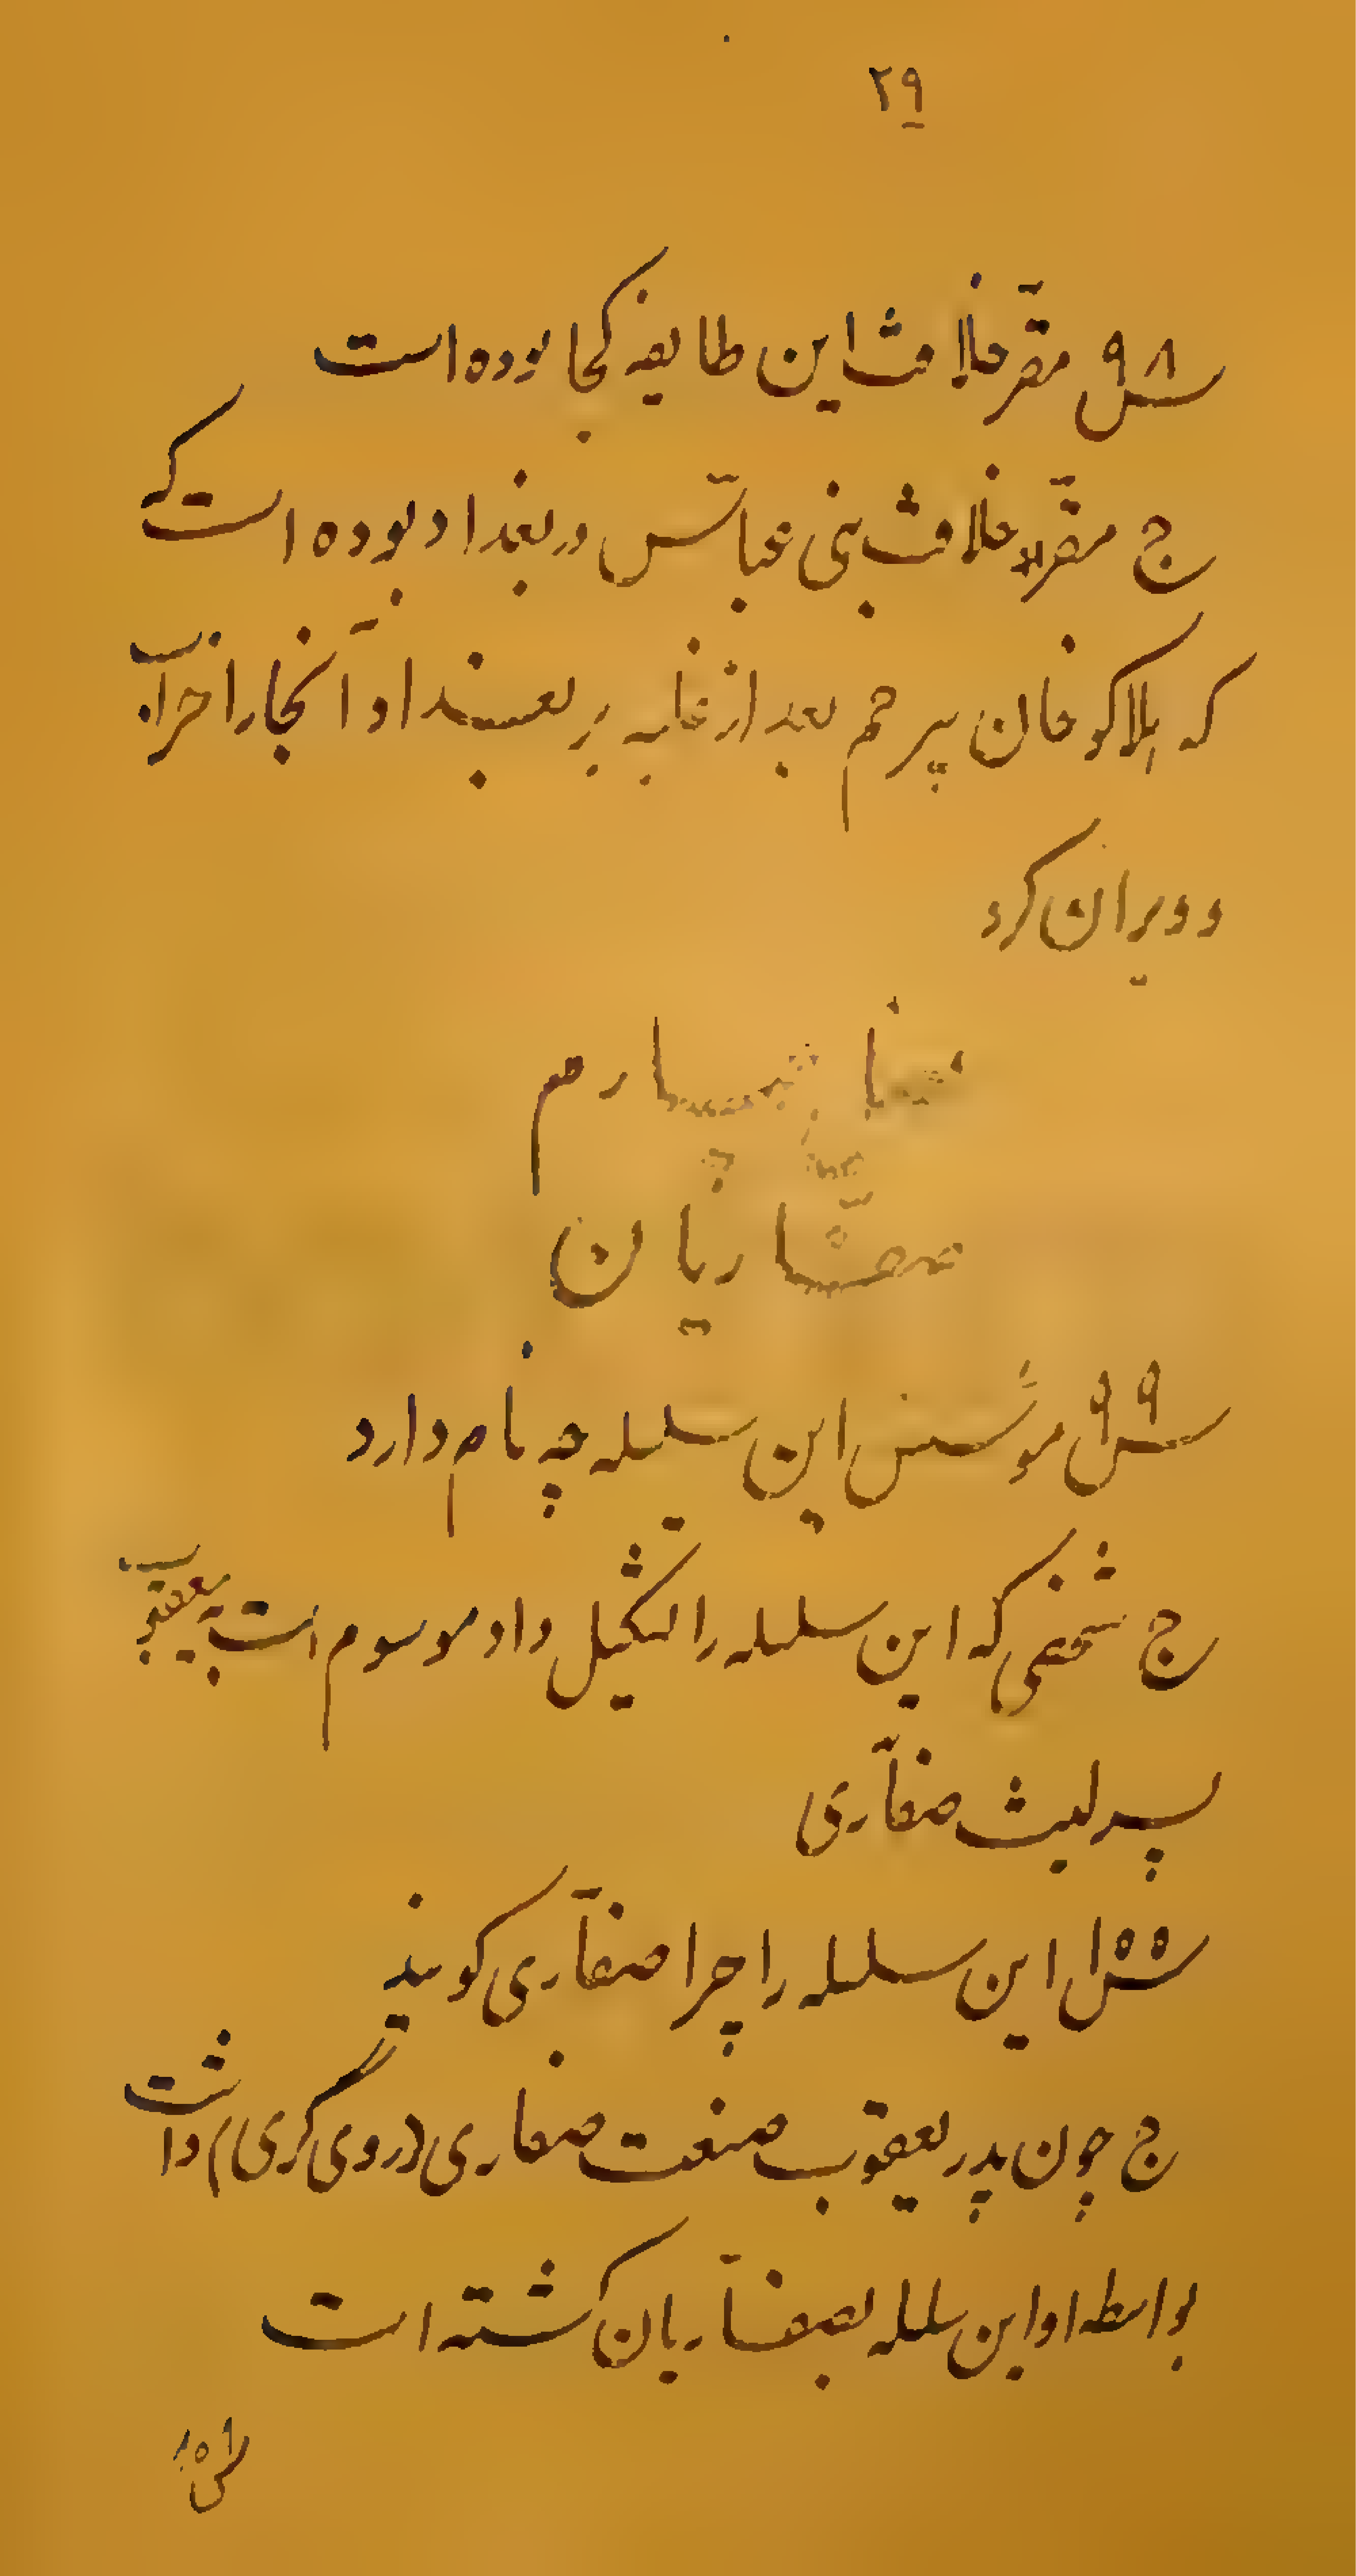 ۲۹
س ۹۸ مقرّ خلافت این طایفه کجا بوده است
ج مقرّ خلافت بنی عبّاس در بغداد بوده است که
که هلاکو خان بیرحم بعد از غلبه بر بغداد آنجا را خراب
و ویران کرد
چهارم
صفّاریان
س ۹۹ مؤسّس این سلسله چه نام دارد
ج شخصی که این سلسله را تشکیل داد موسوم است به یعقوب
پسر لیث صفّاری
س ۱۰۰ این سلسله را چرا صفّاری گویند
ج چون پدر یعقوب صنعت صفاری (رویگری) داشت
بواسطه او این سلسله بصفّاریان گشته است
س ۱۰۱